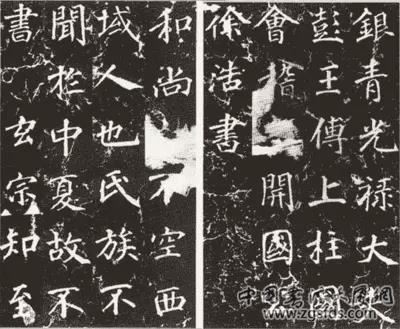 銀青光祿大夫
彭王傅上柱國
會稽開國
徐浩書
和尚不空西
域人也氏族不
聞於中夏故不
書玄宗知至
www.zgsfds.com